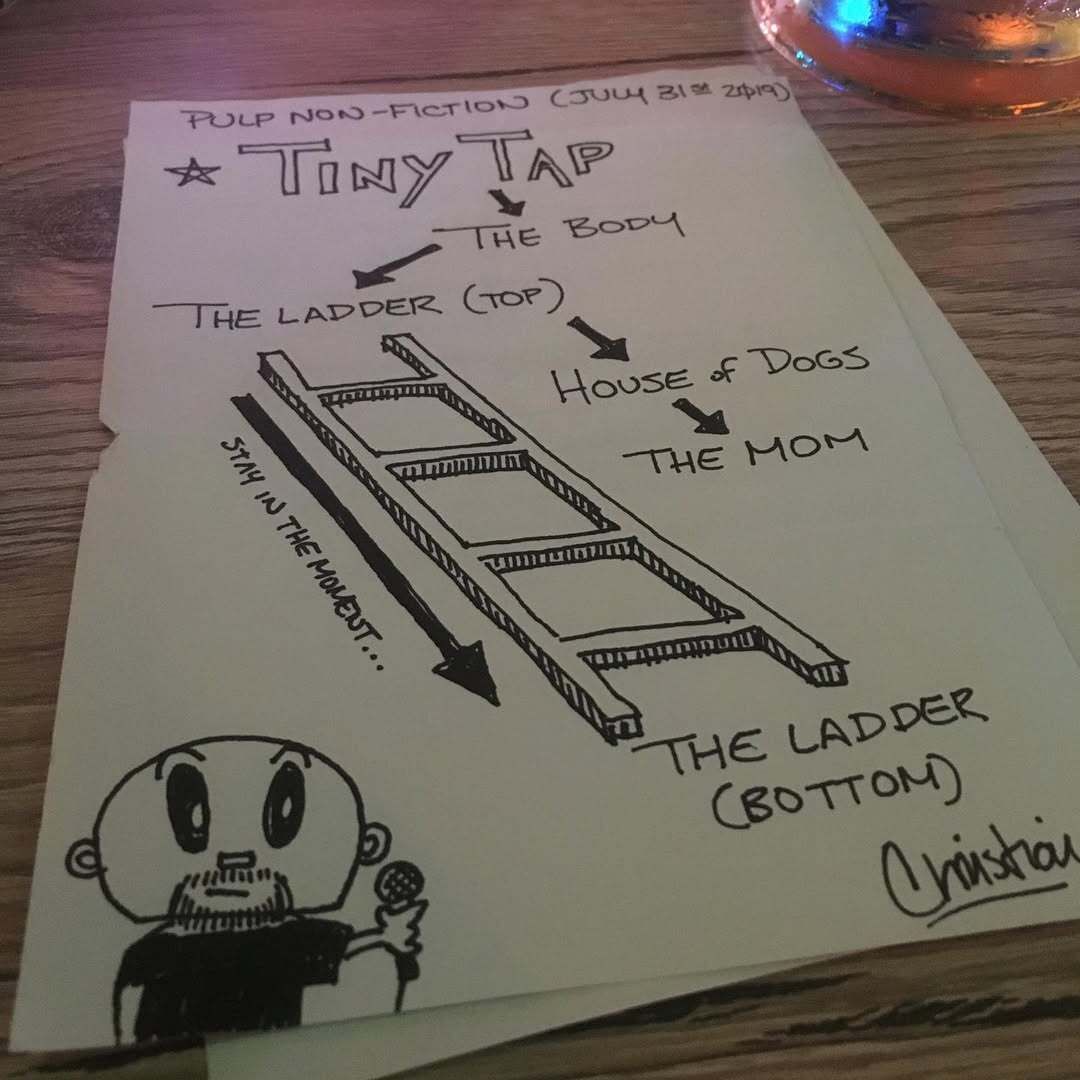 PULP NON-FICTION (JULY 31st 2019)
TINY TAP
THE BODY
THE LADDER (TOP)
HOUSE of DOGS
THE MOM
STAY IN THE MOMENT...
THE LADDER
(BOTTOM)
Christian